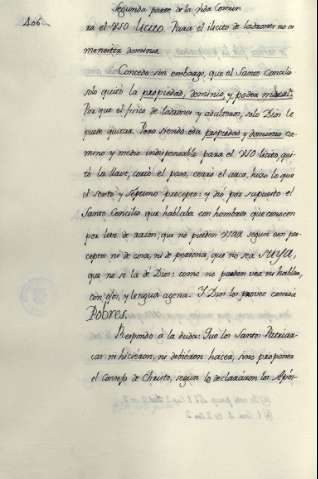 406
Segunda parte de la vida Comun
ra el uso licito. Para el ilicito de ladrones no es
menester dominio.
Concedo sin embargo, que el Santo Concilio
solo quitó la propiedad, dominio, y
Por que el fruto de ladrones y adulteros, solo Dios le
pudo quitar. Pero siendo esta propiedad y dominio, ca-
mino y medio indispensable para el uso licito, qui-
tó la llave, cerró el paso, cerró el arca, hizo lo que
el sexto y septimo precepto: y dio por supuesto el
Santo Concilio que hablaba con hombres que conocen
por luz de razon, que no pueden usar segun ese pre-
cepto ni de cosa, ni de persona, que no sea suya,
que no si la de Dios: como no pueden ver ni hablar,
con ojos, y lengua agena. Y Dios los provee como á
Pobres.
Respondo a la duda: Que los Santos Patriar-
cas ni hicieron, ni debieron hacer, sino
el consejo de Christo, segun lo declararon los Após-